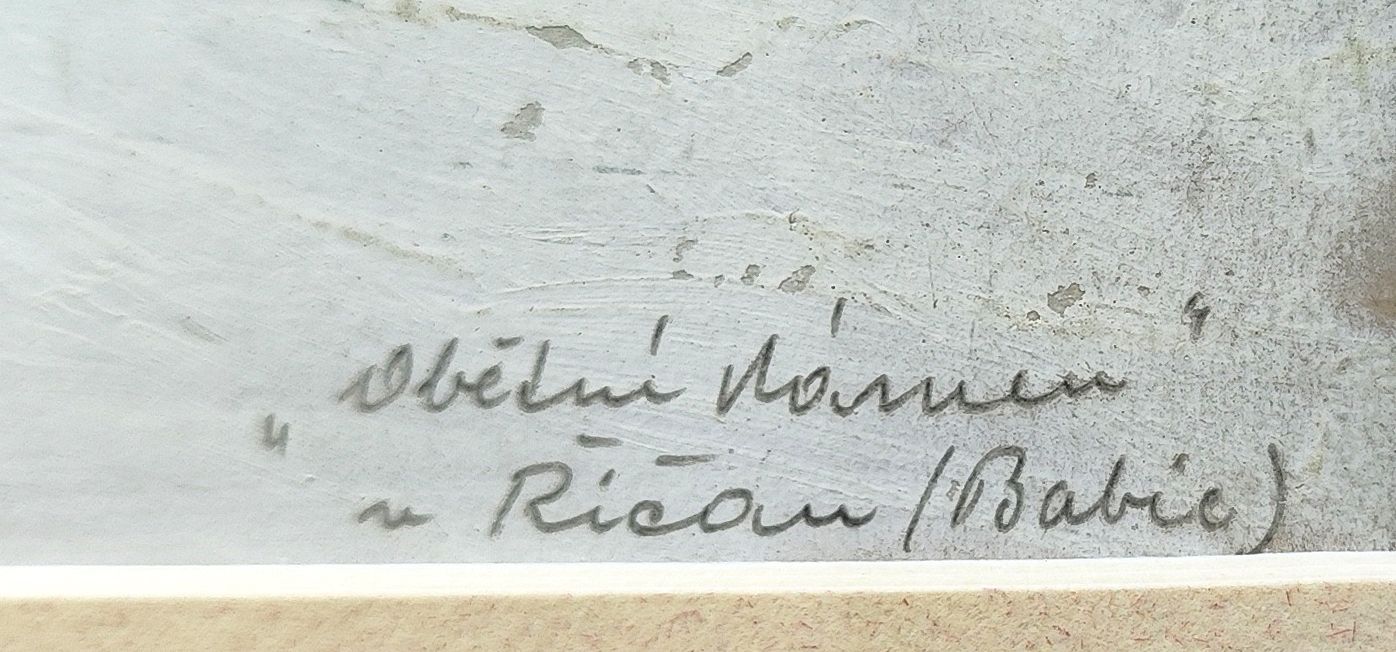 „Obětní kámen“
u Říčan (Babic)